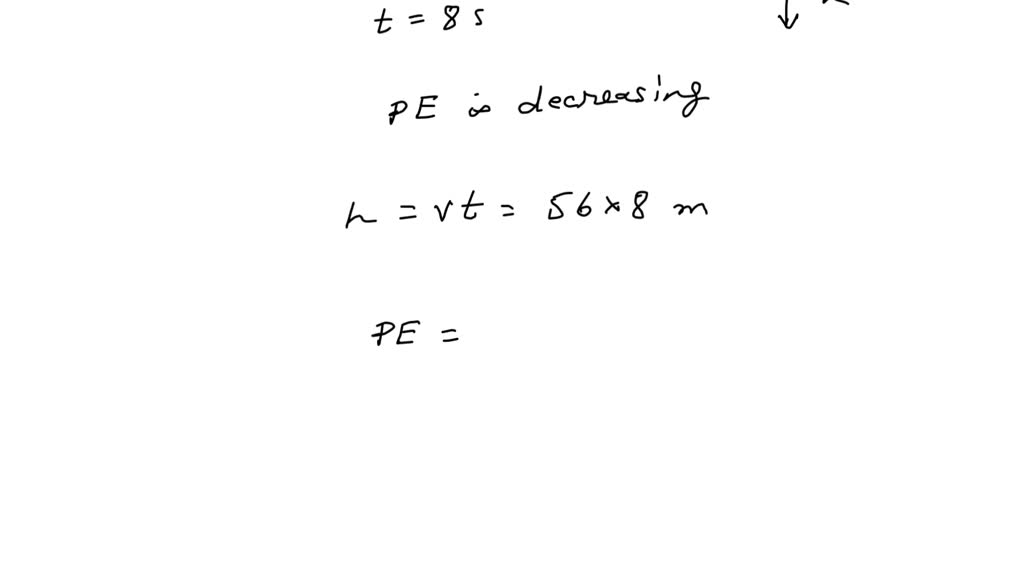 t = 8 s
PE is decreasing
h = vt = 56 × 8 m
PE =